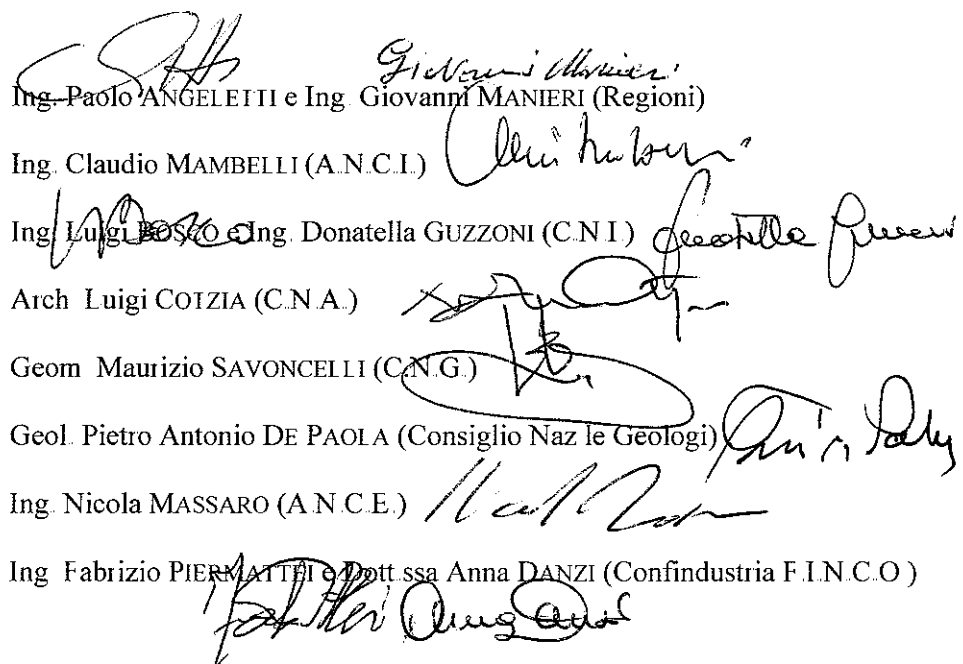 Giovanni Manieri
Ing. Paolo ANGELETTI e Ing. Giovanni MANIERI (Regioni)
Ing. Claudio MAMBELLI (A.N.C.I.)
Ing. Luigi BOSCO e Ing. Donatella GUZZONI (C.N.I.)
Arch Luigi COTZIA (C.N.A.)
Geom Maurizio SAVONCELLI (C.N.G.)
Geol. Pietro Antonio DE PAOLA (Consiglio Naz le Geologi)
Ing. Nicola MASSARO (A.N.C.E.)
Ing Fabrizio PIERMATTEI e Dott.ssa Anna DANZI (Confindustria F.I.N.C.O)